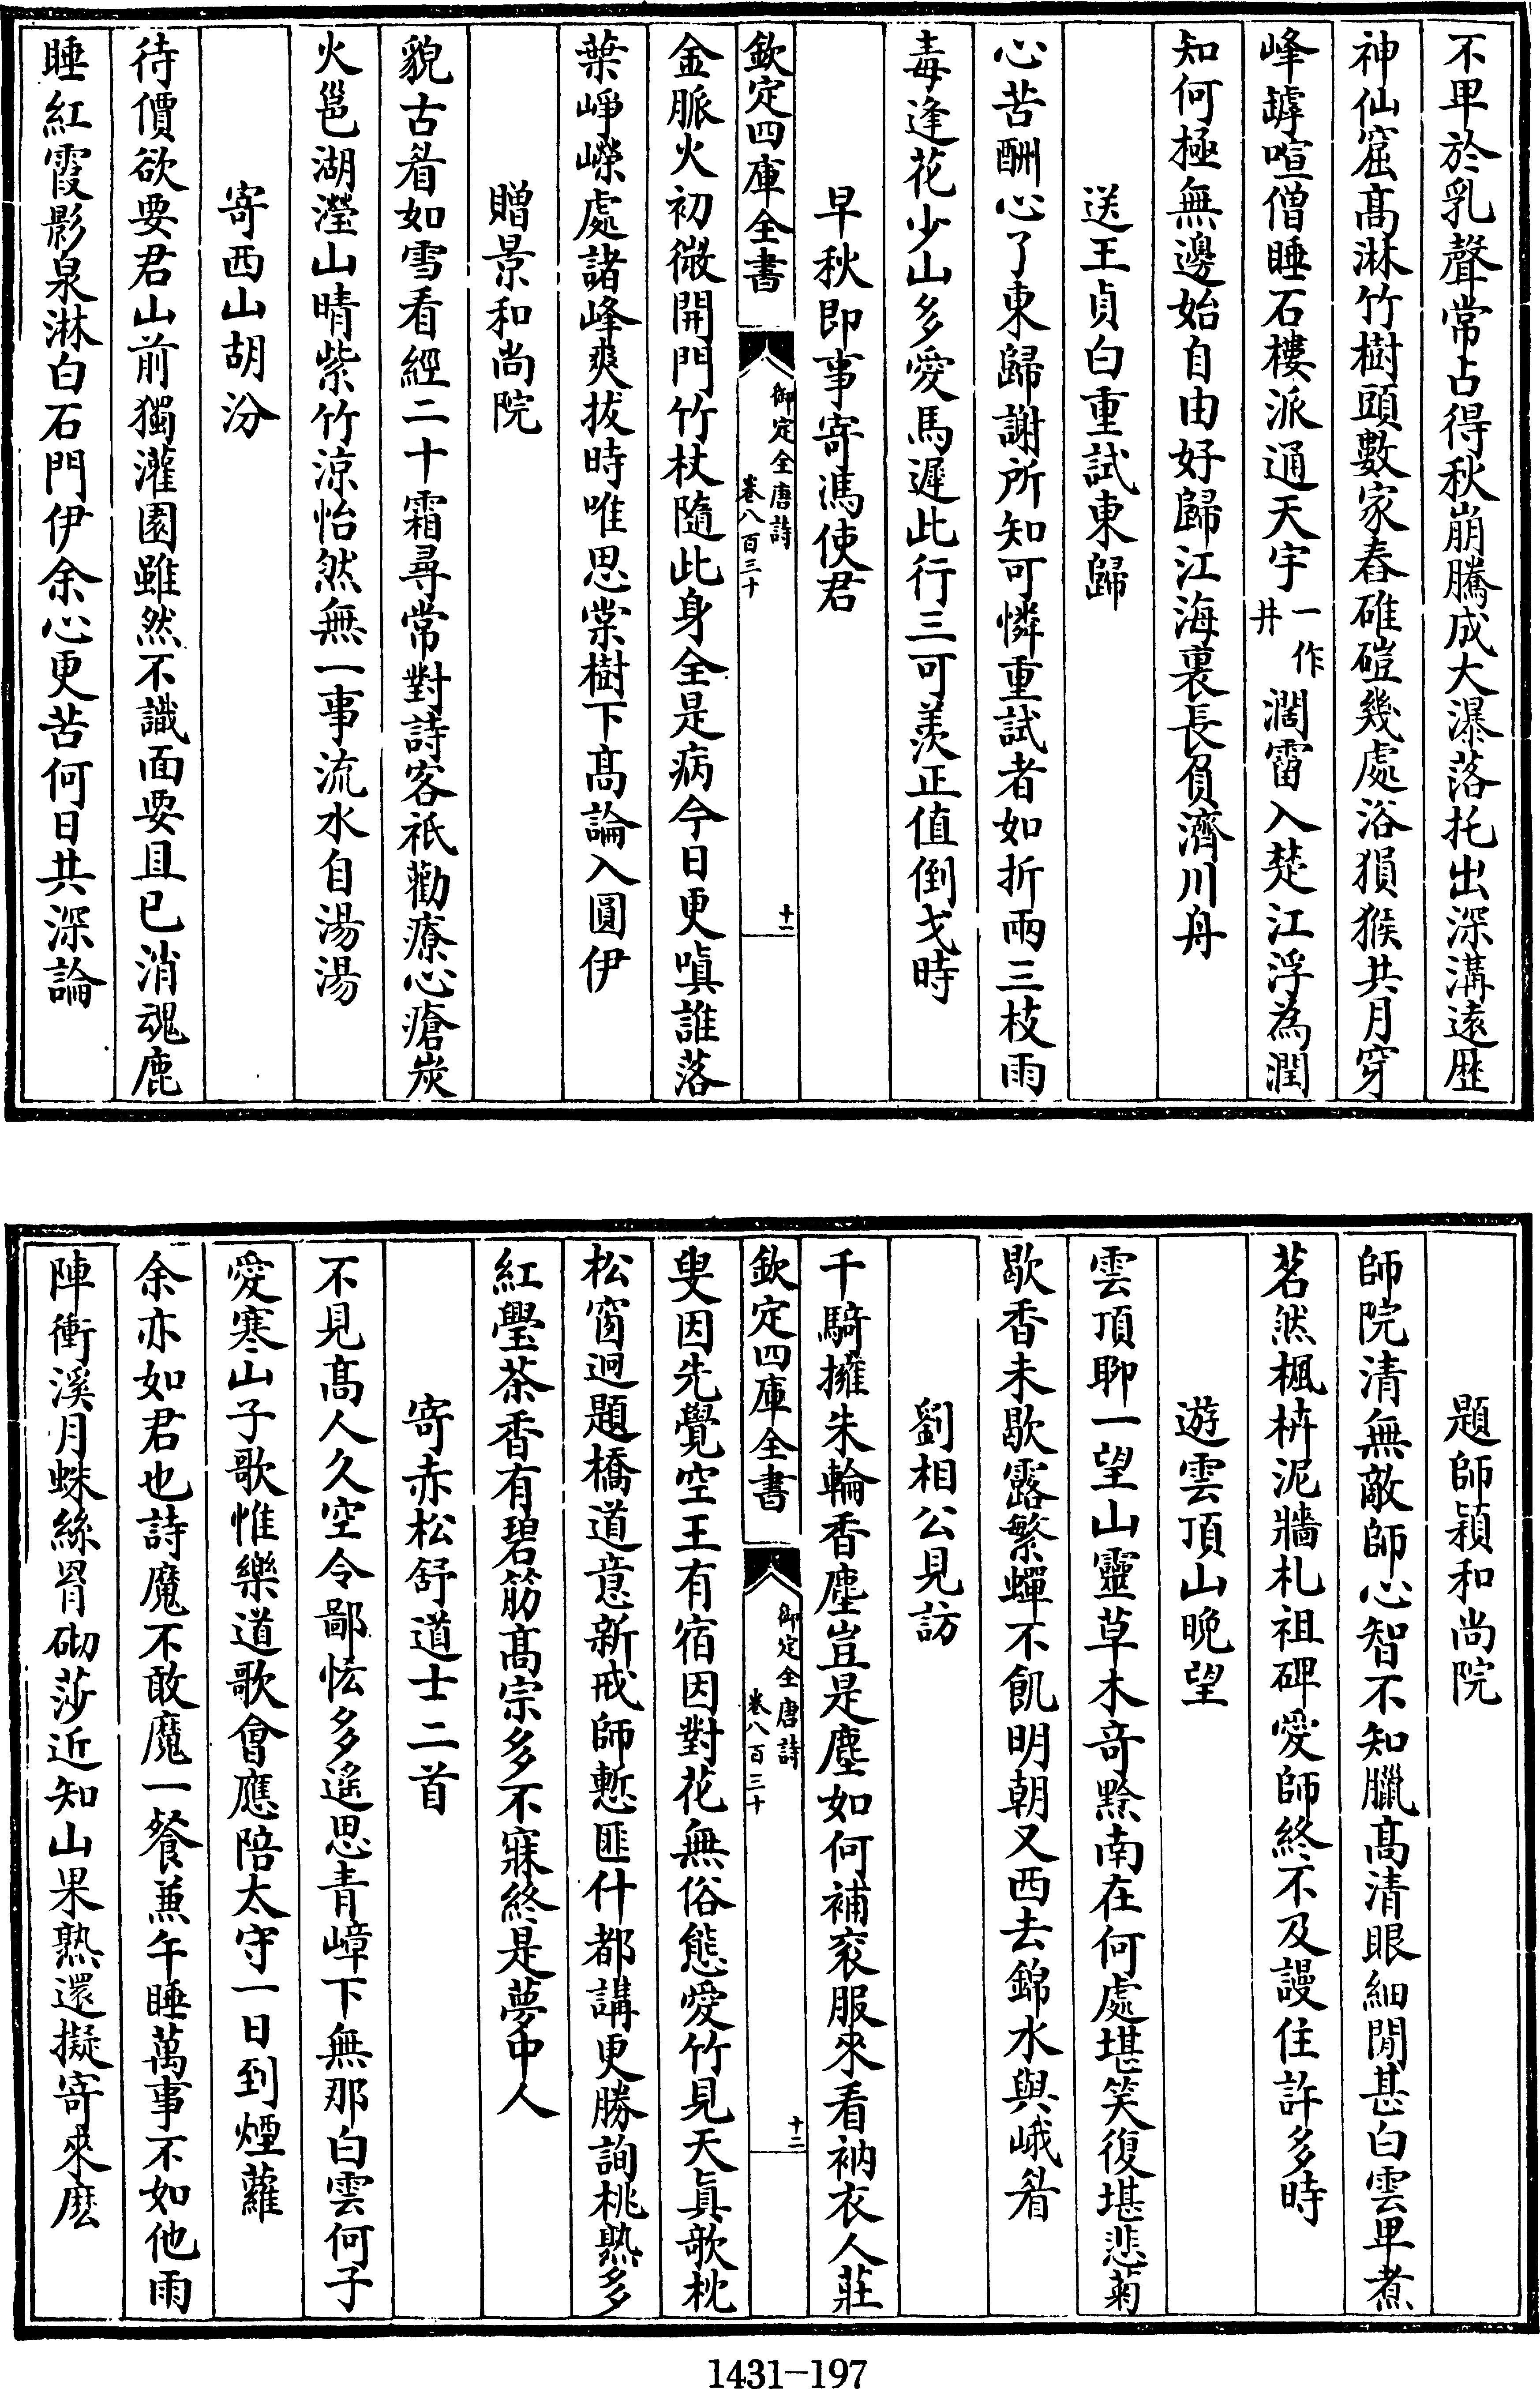 不卑於乳聲常占得秋崩騰成大瀑落托出深溝遠歴
神仙窟髙淋竹樹頭數家舂碓磑幾處浴猨猴共月穿
峰罅喧僧睡石樓派通天宇一作井濶霤入楚江浮為潤
知何極無邊始自由好歸江海裏長負濟川舟
送王貞白重試東歸
心苦酬心了東歸謝所知可憐重試者如折兩三枝雨
毒逢花少山多愛馬遲此行三可羨正值倒戈時
早秋即事寄馮使君
欽定四庫全書
御定全唐詩
卷八百三十
十一
金脈火初微開門竹杖隨此身全是病今日更嗔誰落
葉崢嶸處諸峰爽拔時唯思棠樹下髙論入圓伊
贈景和尚院
貌古眉如雪看經二十霜尋常對詩客祇勸療心瘡炭
火邕湖瀅山晴紫竹涼怡然無一事流水自湯湯
寄西山胡汾
待價欲要君山前獨灌園雖然不識面要且已消魂鹿
睡紅霞影泉淋白石門伊余心更苦何日共深論
題師穎和尚院
師院清無敵師心智不知臘髙清眼細閒甚白雲卑煮
茗然楓枿泥牆札祖碑愛師終不及謾住許多時
遊雲頂山晚望
雲頂聊一望山靈草木竒黔南在何處堪笑復堪悲菊
歇香未歇露繁蟬不飢明朝又西去錦水與峨眉
劉相公見訪
千騎擁朱輪香塵豈是塵如何補衮服來看衲衣人莊
欽定四庫全書
御定全唐詩
卷八百三十
十二
叟因先覺空王有宿因對花無俗態愛竹見天真歌枕
松窗迥題橋道意新戒師慙匪什都講更勝詢桃熟多
紅璺茶香有碧筋髙宗多不寐終是夢中人
寄赤松舒道士二首
不見髙人久空令鄙恡多遙思青嶂下無那白雲何子
愛寒山子歌惟樂道歌會應陪太守一日到煙蘿
余亦如君也詩魔不敢魔一餐兼午睡萬事不如他雨
陣衝溪月蛛絲罥砌莎近知山果熟還擬寄來麽
1431-197